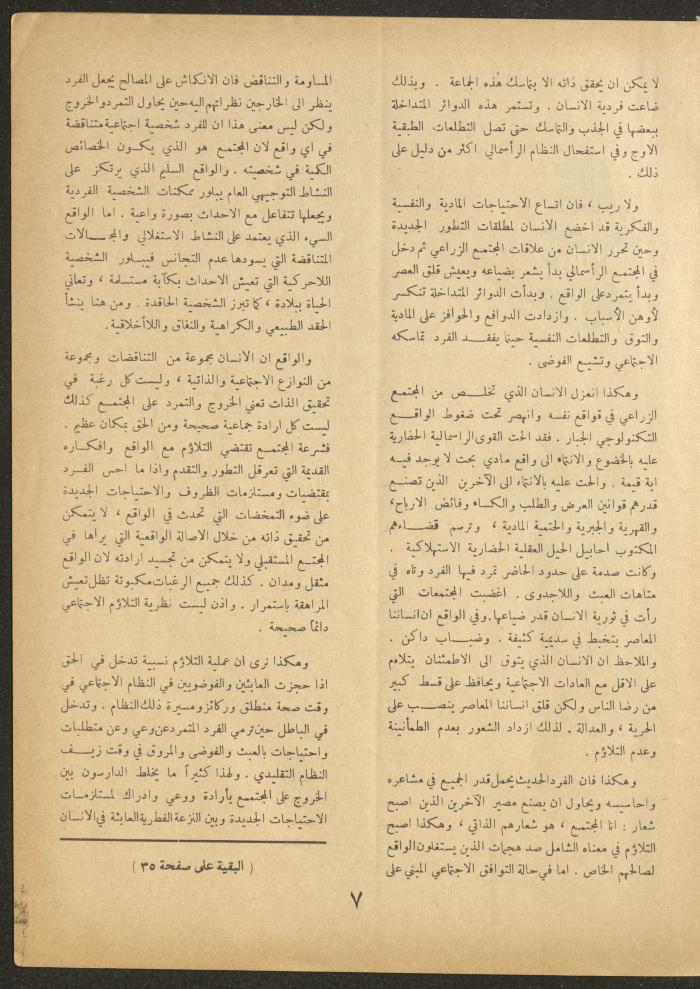 لا يمكن ان يحقق ذاته الا بتماسك هذه الجماعة . وبذلك
ضاعت فردية الانسان . وتستمر هذه الدوائر المتداخلة
ببعضها في الجذب والتماسك حتى تصل التطلعات الطبقية
الاوج وفي استفحال النظام الرأسمالي اكثر من دليل على
ذلك .
ولا ريب ، فان اتساع الاحتياجات المادية والنفسية
والفكرية قد اخضع الانسان لمطلقات التطور الجديدة
وحين تحرر الانسان من علاقات المجتمع الزراعي ثم دخل
في المجتمع الرأسمالي بدأ يشعر بضياعه ويعيش قلق العصر
وبدأ يتمرد على الواقع . وبدأت الدوائر المتداخلة تنكسر
لأوهن الأسباب . وازدادت الدوافع والحوافز على المادية
والتوق والتطلعات النفسية حينما يفقد الفرد تماسكه
الاجتماعي وتشيع الفوضى .
وهكذا انعزل الانسان الذي تخلص من المجتمع
الزراعي في قواقع نفسه وانهصر تحت ضغوط الواقع
التكنولوجي الجبار . فقد الحت القوى الراسمالية الحضارية
عليه بالخضوع والانتماء الى واقع مادي بحت لا يوجد فيه
اية قيمة . والحت عليه بالانتماء الى الآخرين الذين تصنع
قدرهم قوانين العرض والطلب والكساد وفائض الارباح،
والقهرية والجبرية والحتمية المادية ، وترسم قضاءهم
المكتوب احابيل الحيل العقلية الحضارية الاستهلاكية .
وكانت صدمة على حدود الحاضر تمرد فيها الفرد وتاه في
متاهات العبث واللاجدوى . اغضبت المجتمعات التي
رأت في ثورية الانسان قدر ضياعها. وفي الواقع ان انساننا
المعاصر يتخبط في سديمية كثيفة . وضباب داكن .
والملاحظ ان الانسان الذي يتوق الى الاطمئنان يتلاءم
على الاقل مع العادات الاجتماعية ويحافظ على قسط كبير
من رضا الناس ولكن قلق انساننا المعاصر ينصب على
الحرية ، والعدالة . لذلك ازداد الشعور بعدم الطمأنينة
وعدم التلاؤم .
وهكذا فان الفرد الحديث يحمل قدر الجميع في مشاعره
واحاسيسه ويحاول ان يصنع مصير الآخرين الذين اصبح
شعار : انا المجتمع ، هو شعارهم الذاتي ، وهكذا اصبح
التلاؤم في معناه الشامل صد هجمات الذين يستغلون الواقع
لصالحهم الخاص . اما في حالة التوافق الاجتماعي المبني على
المساومة والتناقض فان الانكماش على المصالح يجعل الفرد
ينظر الى الخارجين نظراتهم اليه حين يحاول التمرد والخروج
ولكن ليس معنى هذا ان للفرد شخصية اجتماعية متناقضة
في اي واقع لان المجتمع هو الذي يكون الخصائص
الكمية في شخصيته . والواقع السليم الذي يرتكز على
النشاط التوجيهي العام يبلور ممكنات الشخصية الفردية
ويجعلها تتفاعل مع الاحداث بصورة واعية . اما الواقع
السيء الذي يعتمد على النشاط الاستغلالي والمجالات
المتناقضة التي يسودها عدم التجانس فيبلور الشخصية
اللاحركية التي تعيش الاحداث بكآبة مستسلمة ، وتعاني
الحياة ببلادة ، كما تبرز الشخصية الحاقدة . ومن هنا ينشأ
الحقد الطبيعي والكراهية والنفاق واللاأخلاقية.
والواقع ان الانسان مجموعة من التناقضات ومجموعة
من النوازع الاجتماعية والذاتية ، وليست كل رغبة في
تحقيق الذات تعني الخروج والتمرد على المجتمع كذلك
ليست كل ارادة جماعية صحيحة ومن الحق بمكان عظيم .
فشرعة المجتمع تقتضي التلاؤم مع الواقع وافكاره
القديمة التي تعرقل التطور والتقدم واذا ما احس الفرد
بمقتضيات ومستلزمات الظروف والاحتياجات الجديدة
على ضوء التمخضات التي تحدث في الواقع ، لا يتمكن
من تحقيق ذاته من خلال الاصالة الواقعية التي يراها في
المجتمع المستقبلي ولا يتمكن من تجسيد ارادته لان الواقع
مثقل ومدان . كذلك جميع الرغبات مكبوتة تظل تعيش
المراهقة باستمرار . واذن ليست نظرية التلاؤم الاجتماعي
دائماً صحيحة .
وهكذا نرى ان عملية التلاؤم نسبية تدخل في الحق
اذا حجزت العابثين والفوضويين في النظام الاجتماعي في
وقت صحة منطلق وركائز ومسيرة ذلك النظام . وتدخل
في الباطل حين ترمي الفرد المتمرد عن وعي وعن متطلبات
واحتياجات بالعبث والفوضى والمروق في وقت زيف
النظام التقليدي . ولهذا كثيراً ما يخلط الدارسون بين
الخروج على المجتمع بأرادة ووعي وادراك لمستلزمات
الاحتياجات الجديدة وبين النزعة الفطرية العابثة في الانسان
( البقية على صفحة ٣٥ )
٧